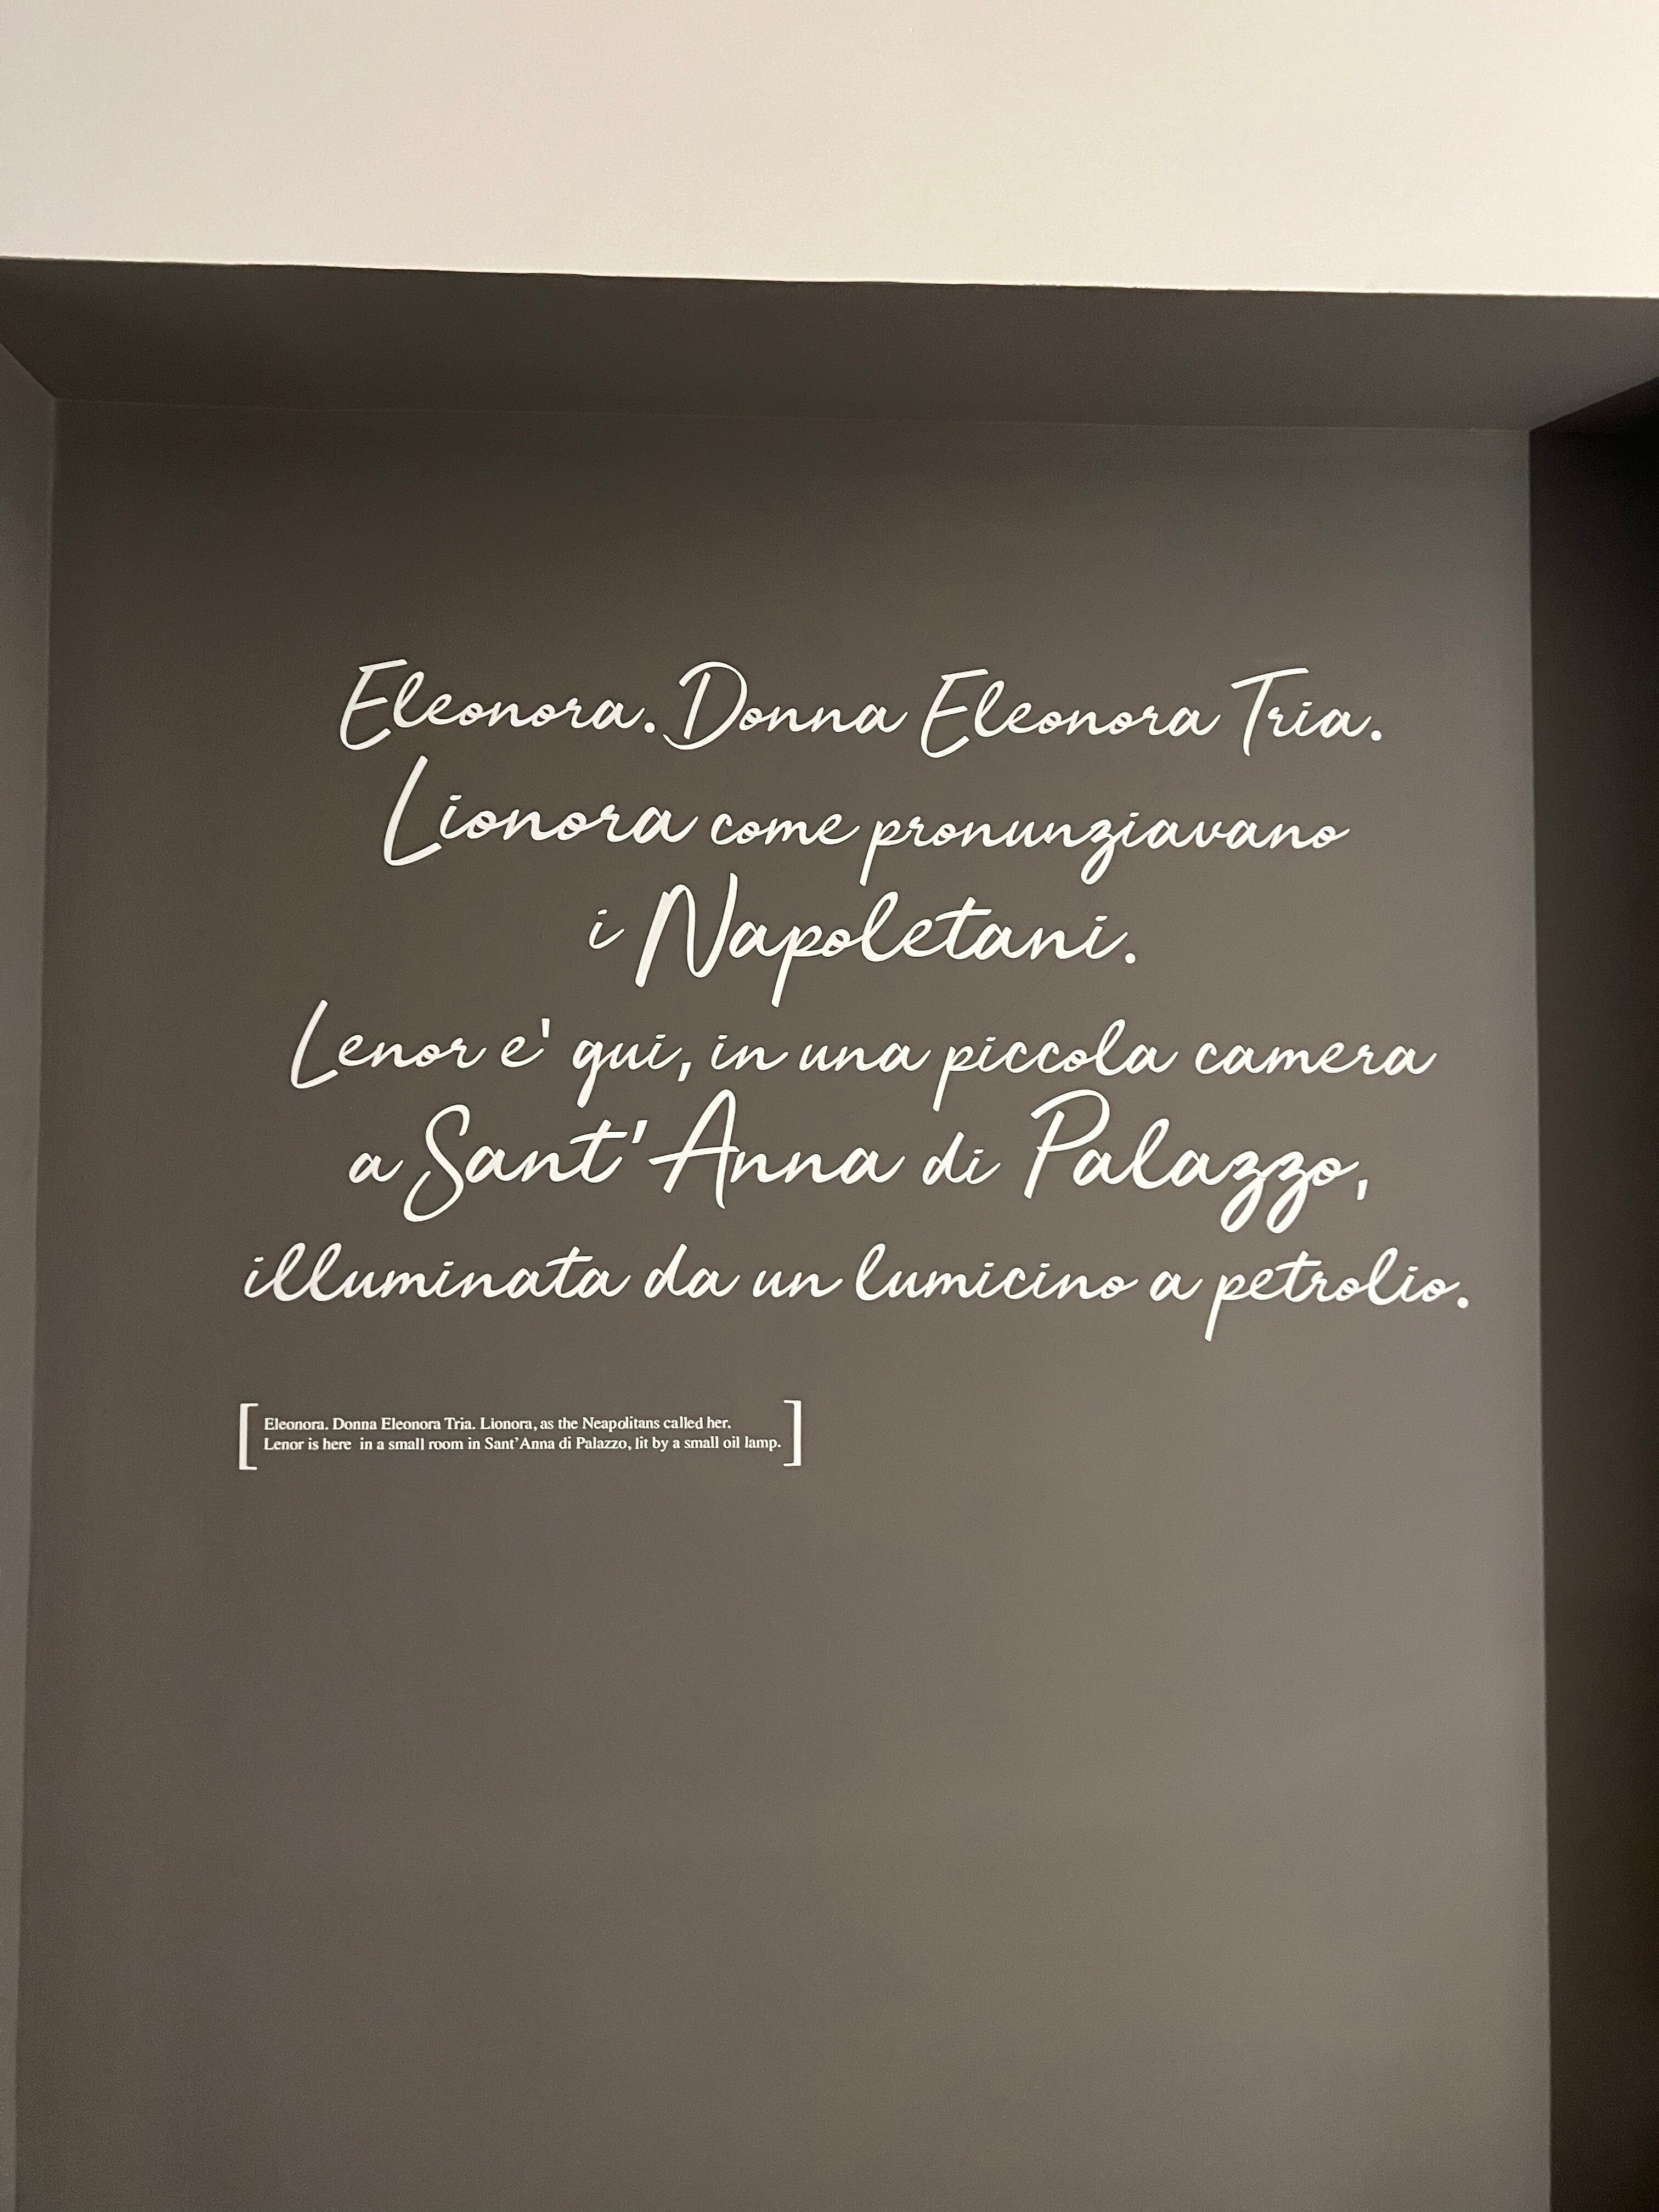 Eleonora. Donna Eleonora Tria.
Lionora come pronunziavano
i Napoletani.
Lenor e' qui, in una piccola camera
a Sant'Anna di Palazzo,
illuminata da un lumicino a petrolio.
[Eleonora. Donna Eleonora Tria. Lionora, as the Neapolitans called her.
Lenor is here in a small room in Sant'Anna di Palazzo, lit by a small oil lamp.]